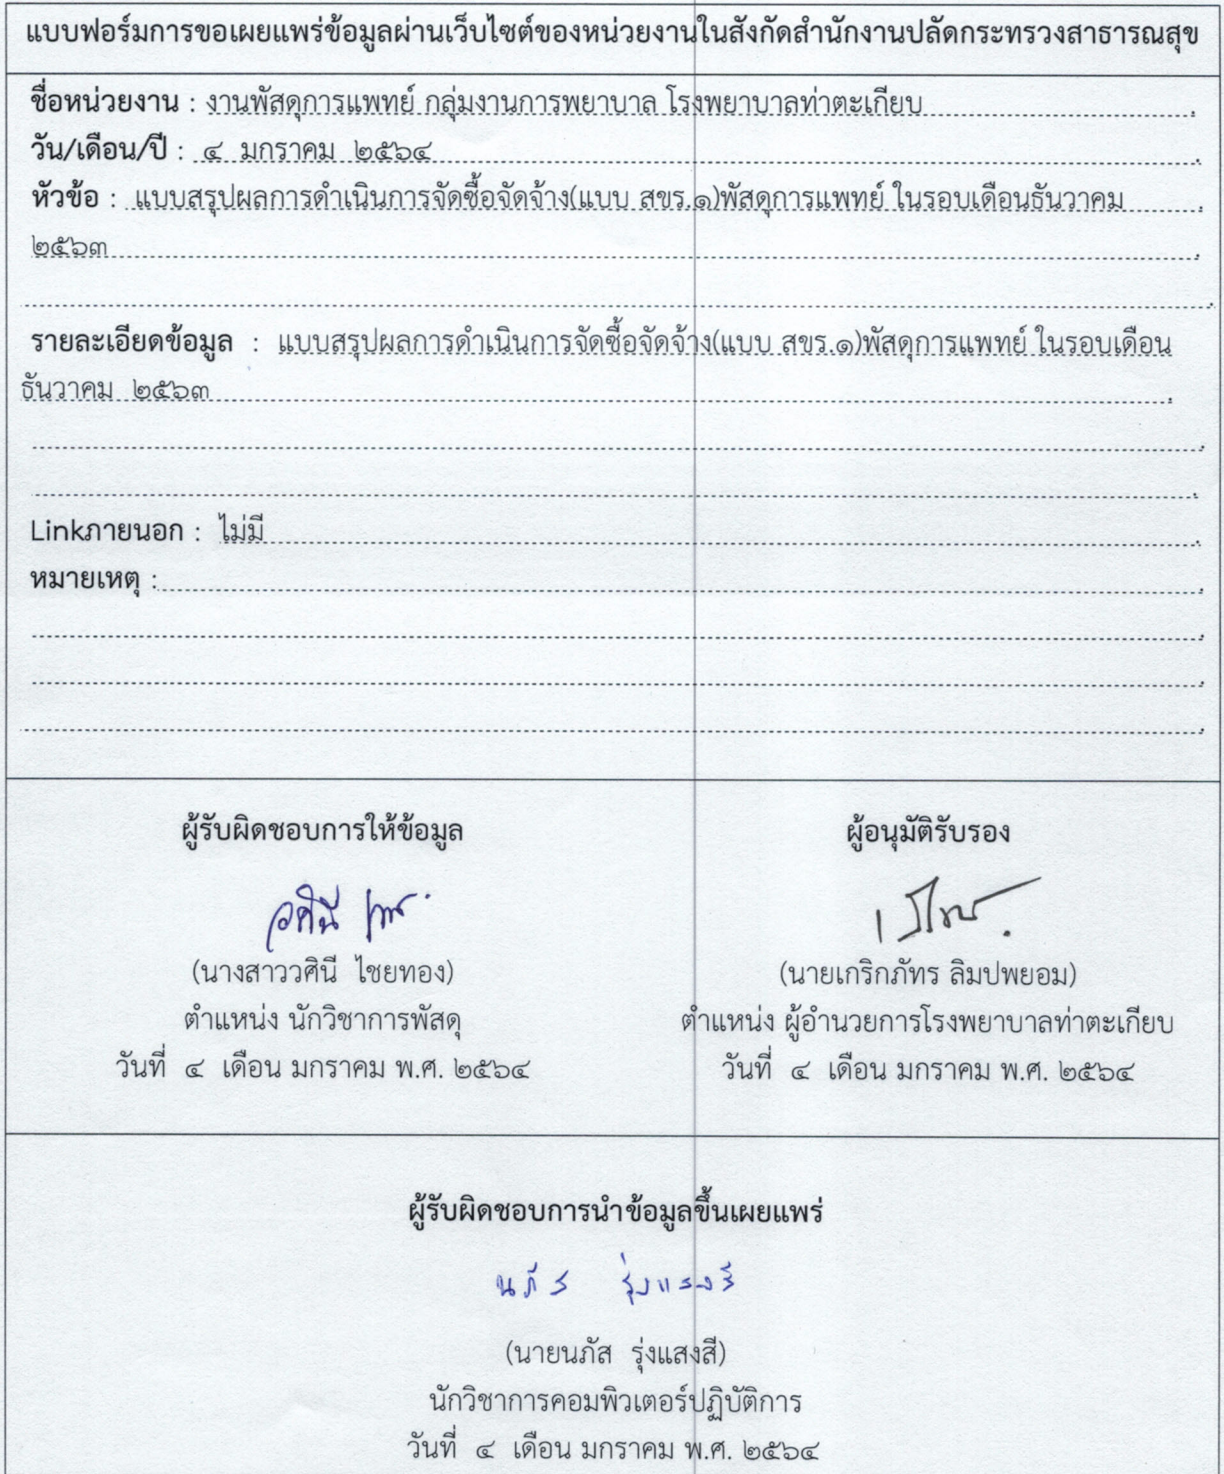 แบบฟอร์มการขอเผยแพร่ข้อมูลผ่านเว็บไซต์ของหน่วยงานในสังกัดสำนักงานปลัดกระทรวงสาธารณสุข
ชื่อหน่วยงาน : งานพัสดุการแพทย์ กลุ่มงานการพยาบาล โรงพยาบาลท่าตะเกียบ
วัน/เดือน/ปี : ๔ มกราคม ๒๕๖๔
หัวข้อ : แบบสรุปผลการดำเนินการจัดซื้อจัดจ้าง(แบบ สขร.๑)พัสดุการแพทย์ ในรอบเดือนธันวาคม
๒๕๖๓
รายละเอียดข้อมูล : แบบสรุปผลการดำเนินการจัดซื้อจัดจ้าง(แบบ สขร.๑)พัสดุการแพทย์ ในรอบเดือน
ธันวาคม ๒๕๖๓
Linkภายนอก : ไม่มี
หมายเหตุ :
ผู้รับผิดชอบการให้ข้อมูล
วศินี
(นางสาววศินี ไชยทอง)
ตำแหน่ง นักวิชาการพัสดุ
วันที่ ๔ เดือน มกราคม พ.ศ. ๒๕๖๔
ผู้อนุมัติรับรอง
(นายเกริกภัทร ลิมปพยอม)
ตำแหน่ง ผู้อำนวยการโรงพยาบาลท่าตะเกียบ
วันที่ ๔ เดือน มกราคม พ.ศ. ๒๕๖๔
ผู้รับผิดชอบการนำข้อมูลขึ้นเผยแพร่
นภัส รุ่งแสงสี
(นายนภัส รุ่งแสงสี)
นักวิชาการคอมพิวเตอร์ปฏิบัติการ
วันที่ ๔ เดือน มกราคม พ.ศ. ๒๕๖๔